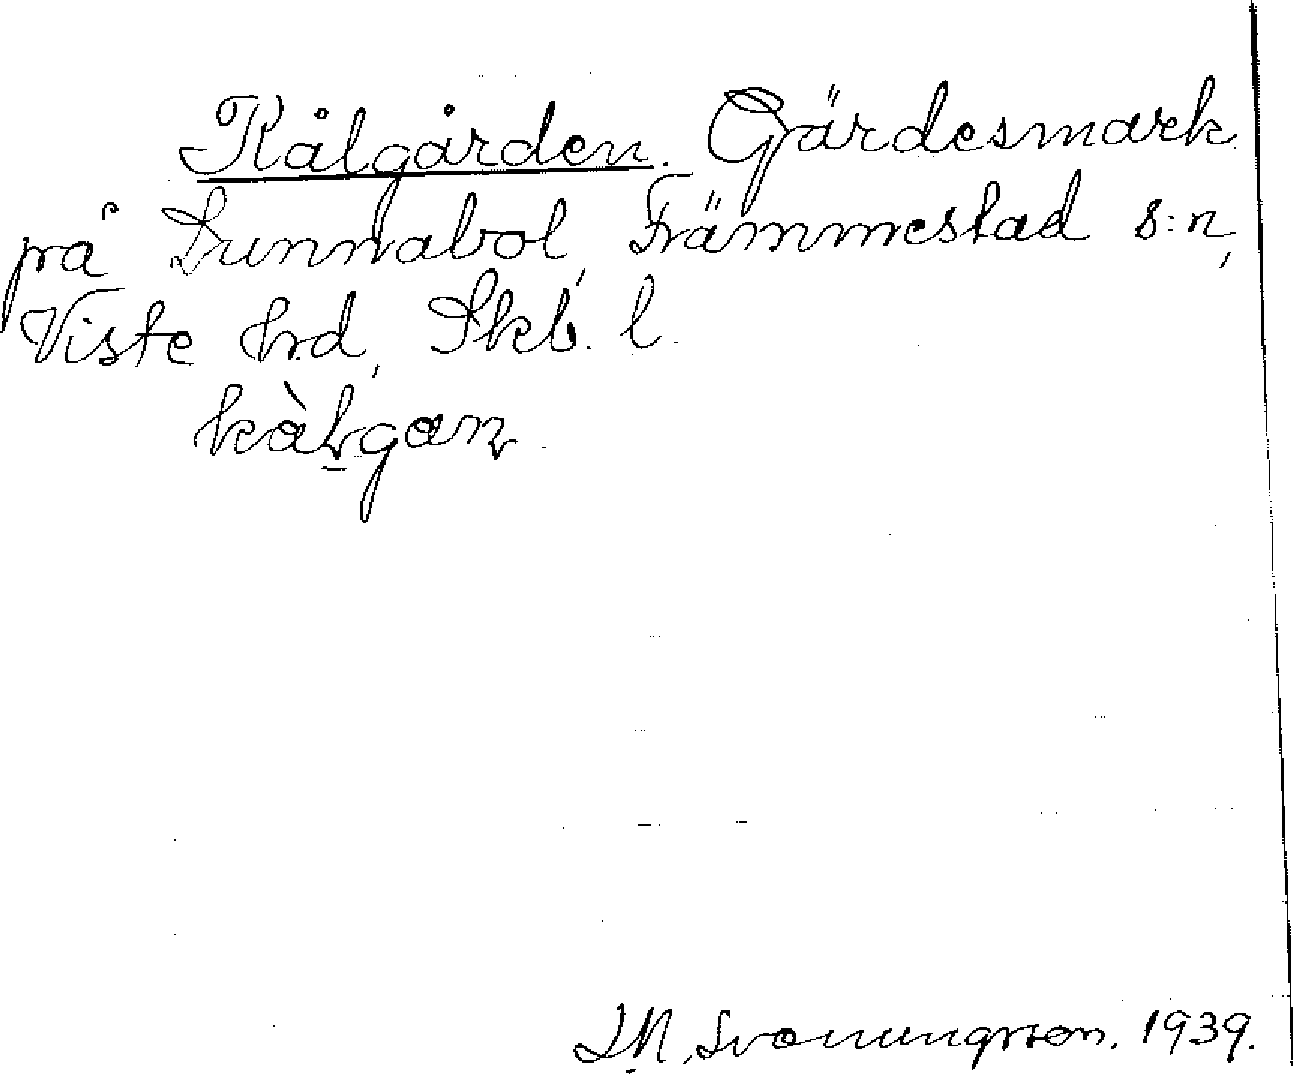 Kålgården. Gärdesmark
på Lunnabol, Främmestad s:n,
Viste hd, Skb. l.
kàlgan
Svenungsson. 1939.